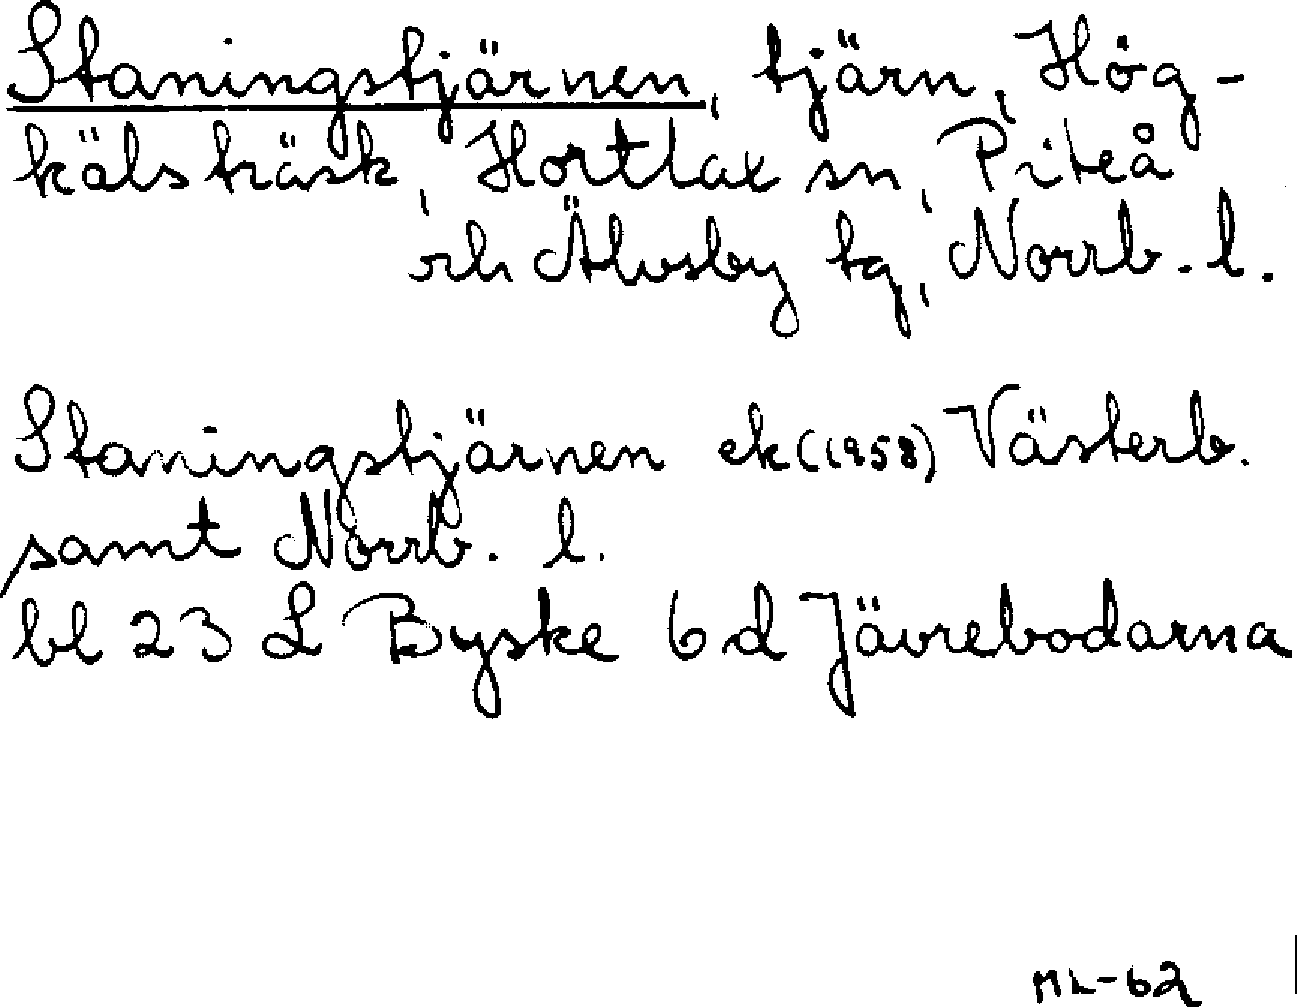 Staningstjärnen, tjärn, Hög-
kälsträsk, Hortlax sn, Piteå
och Älvsby tg, Norrb. l.
Staningstjärnen ek (1958) Västerb.
samt Norrb. l.
bl 23 L Byske 6 d Jävrebodarna
ML-62